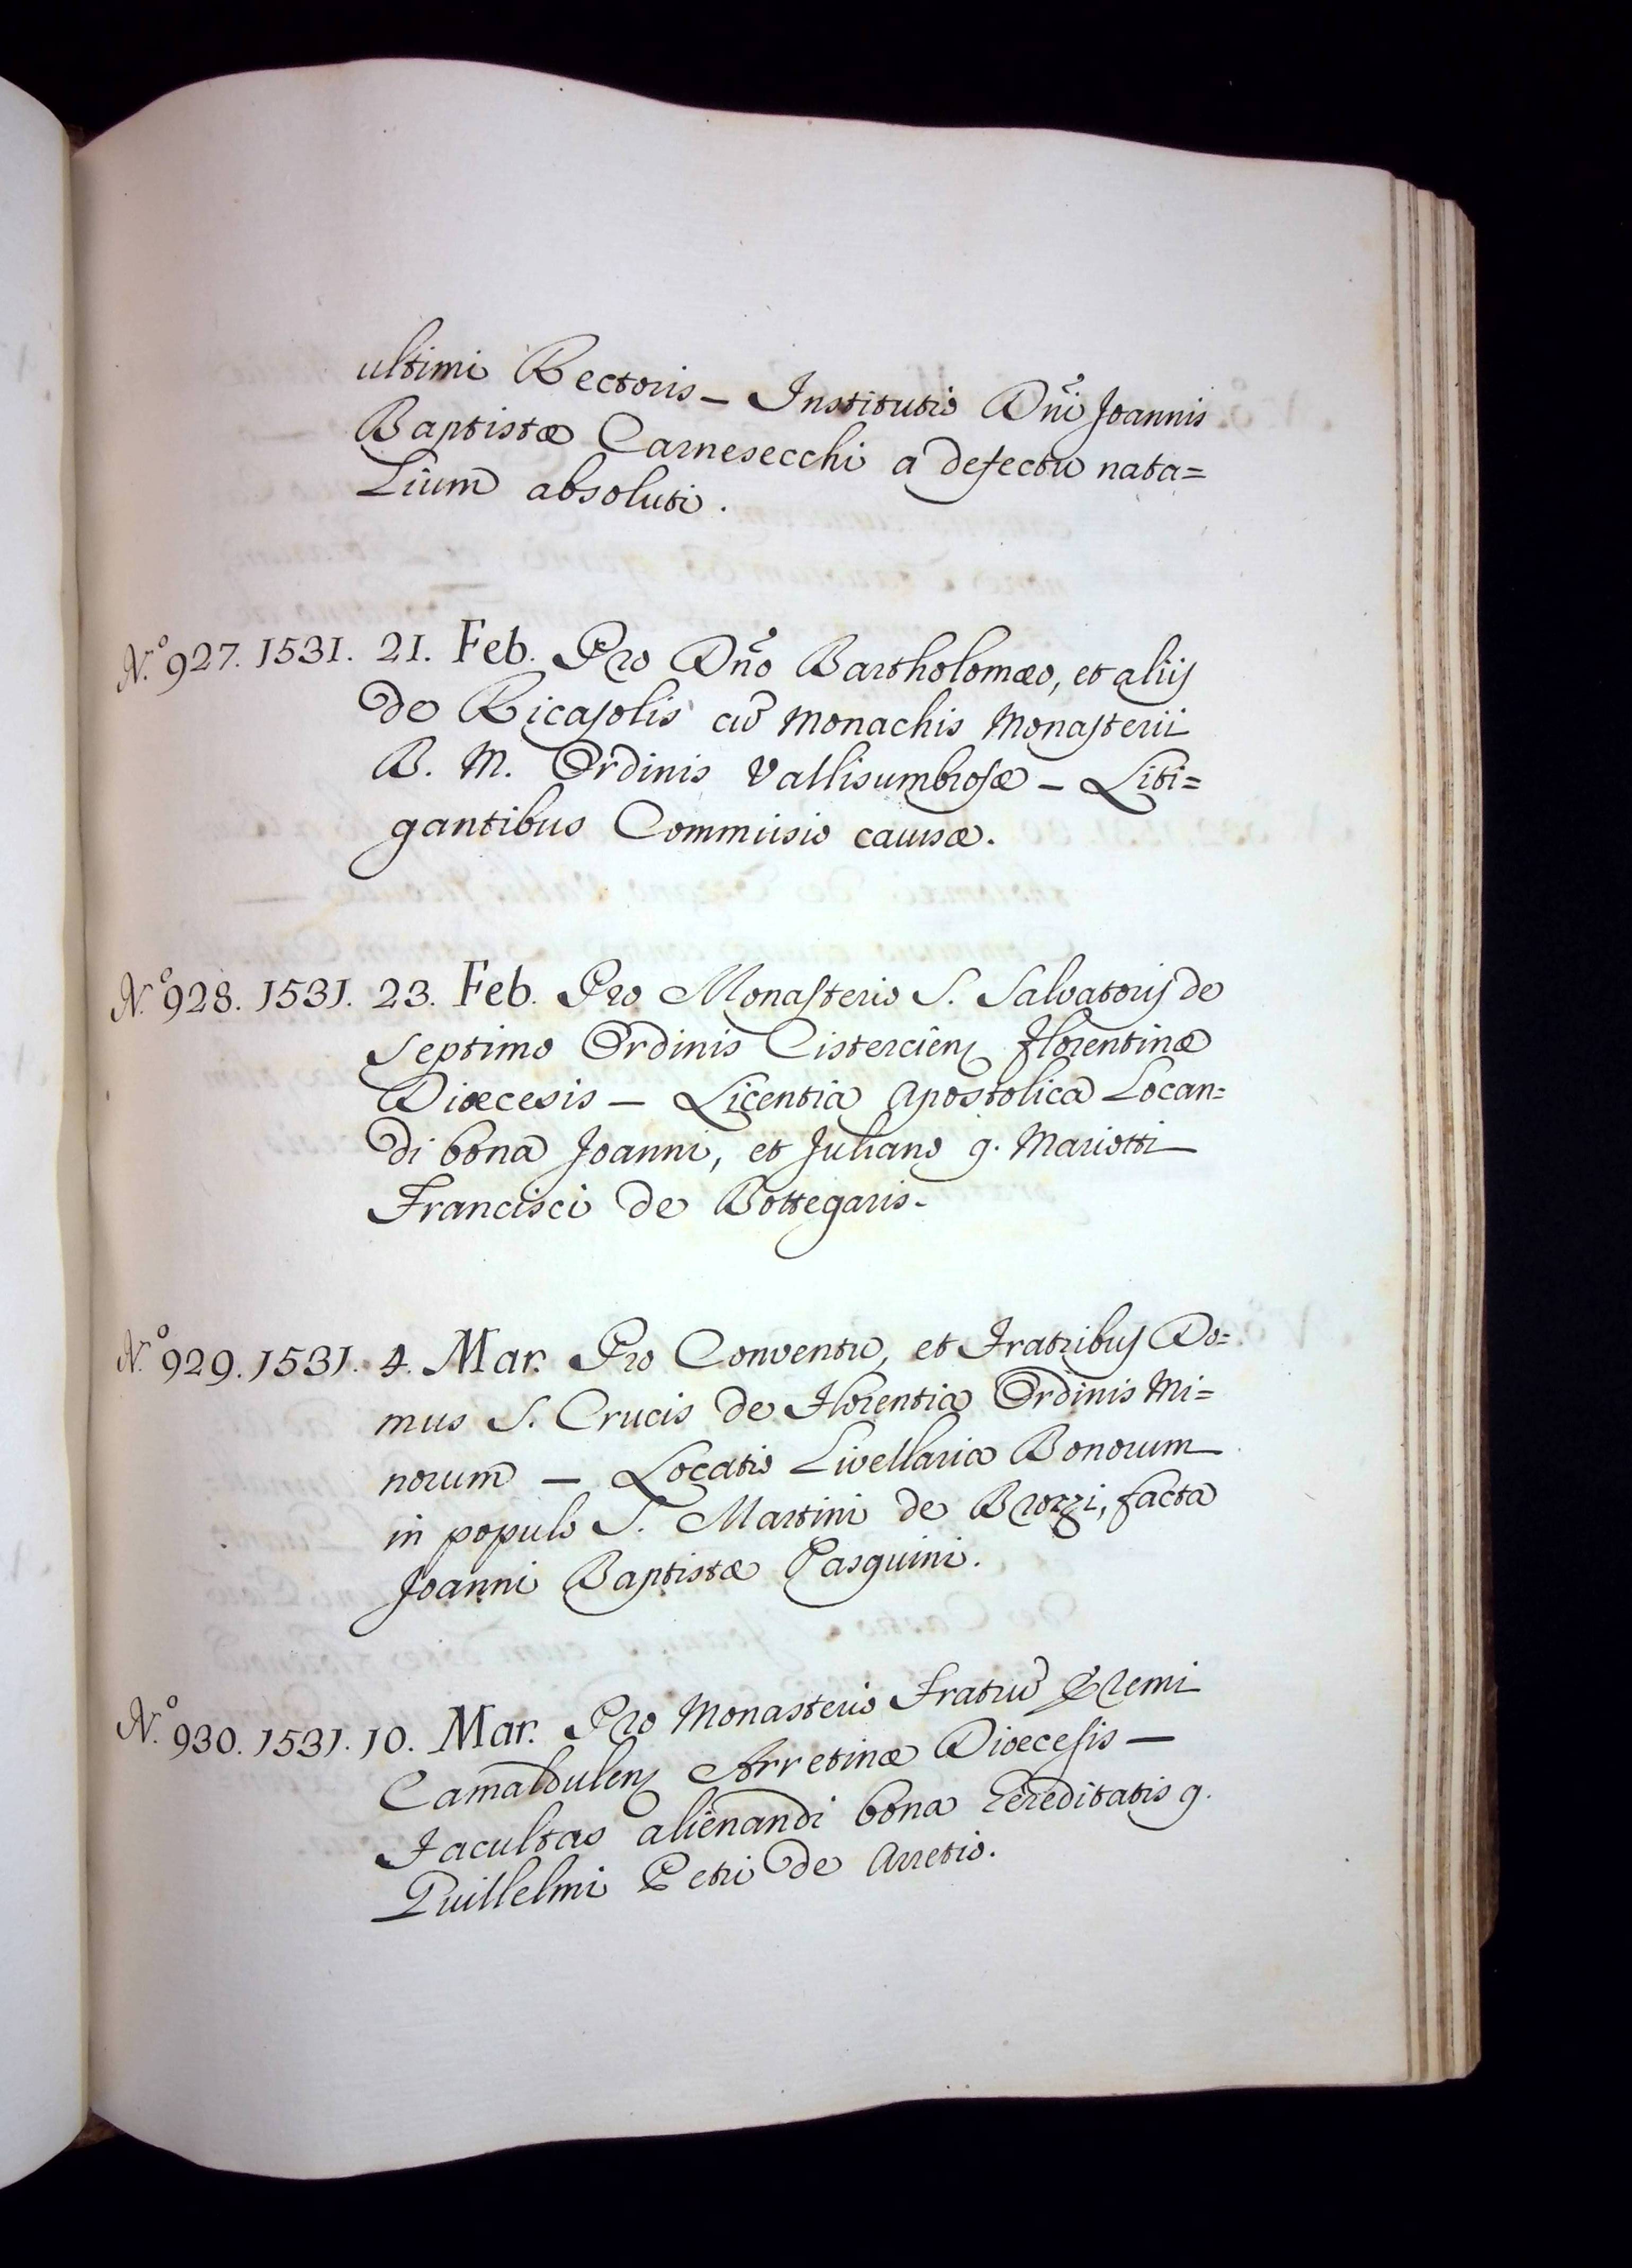 ultimi Rectoris – Institutio Dñi Joannis
Baptistæ Carnesecchi a defectu nata=
Lium absoluti.
N.º 927. 1531. 21. Feb. Pro Dño Bartholomæo, et aliis
de Ricasolis cũ Monachis Monasterii
B. M. Ordinis Vallisumbrosæ – Liti=
gantibus Commissio causæ.
N.º 928. 1531. 23. Feb. Pro Monasterio S. Salvatoris de
Septimo Ordinis Cisterciens Florentinæ
Diœcesis – Licentia Apostolica Locan=
di bona Joanni, et Juliano q. Mariotti
Francisci de Bottegaris.
N.º 929. 1531. 4. Mar. Pro Conventu, et Fratribus Do=
mus S. Crucis de Florentia Ordinis Mi=
norum – Locatio Livellaria Bonorum
in populo S. Martini de Brozzi, facta
Joanni Baptistæ Pasquini.
N.º 930. 1531. 10. Mar. Pro Monasterio Fratrũ Eremi
Camaldulens Arretinæ Diœcesis –
Facultas alienandi bona Hereditatis q.
Guillelmi Petri de Arretio.